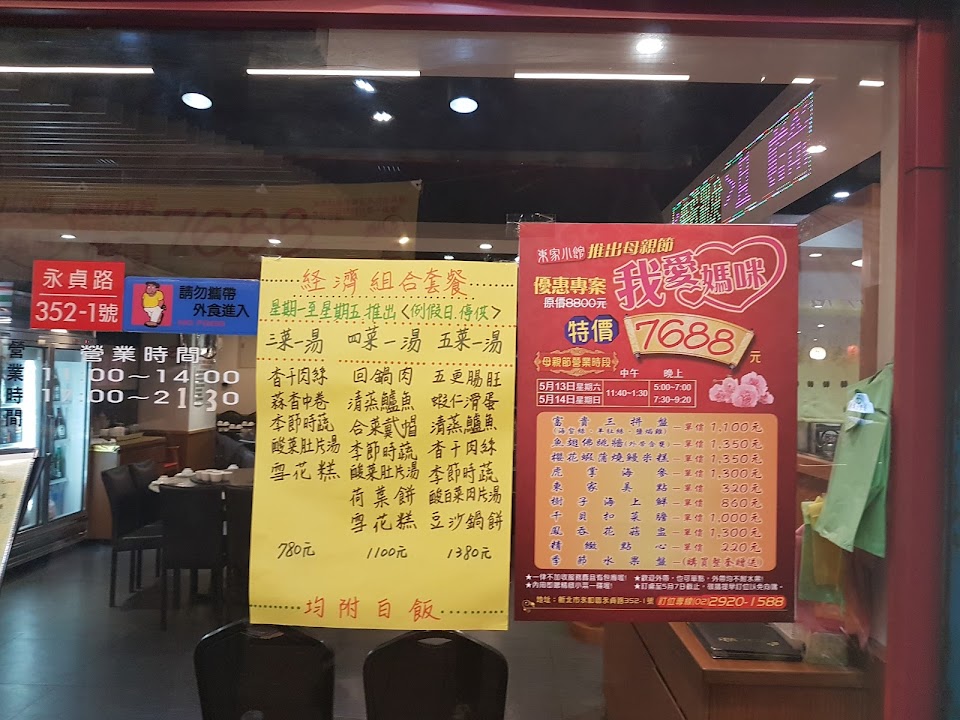 永貞路
352-1號
請勿攜帶
外食進入
營業時間
營業時間
~14:00
~21:30
7688
経濟組合套餐
星期一至星期五推出<例假日.停供>
三菜一湯 四菜一湯 五菜一湯
杳干肉絲 回鍋肉 五更腸旺
蒜香中卷 清蒸鱸魚 蝦仁滑蛋
季節時蔬 合菜戴帽 清蒸鱸魚
酸菜肚片湯 季節時蔬 杳干肉絲
雪花糕 酸菜肚片湯 季節時蔬
荷葉餅 酸白菜肉片湯
雪花糕 豆沙鍋餅
780元 1100元 1380元
均附白飯
東家小館 推出母親節
優惠專案 我愛媽咪
原價8800元
特價 7688元
母親節營業時段 中午 晚上
5月13日星期六
5月14日星期日
11:40~1:30
5:00~7:00
7:30~9:20
富貴三拼盤—單價1,100元
魚翅佛跳牆—單價1,350元
櫻花蝦蒲燒鰻米糕—單價1,350元
虎掌海參—單價1,300元
東家美點—單價320元
樹子海上鮮—單價860元
干貝扣菜膽—單價1,000元
鳳吞花菇盅—單價1,300元
精緻點心—單價220元
季節水果盤—(購買整套贈送)
★歡迎外帶，也可單點，外帶均不附水果!
地址：新北市永和區永貞路352-1號 訂位專線(02)2920-1588